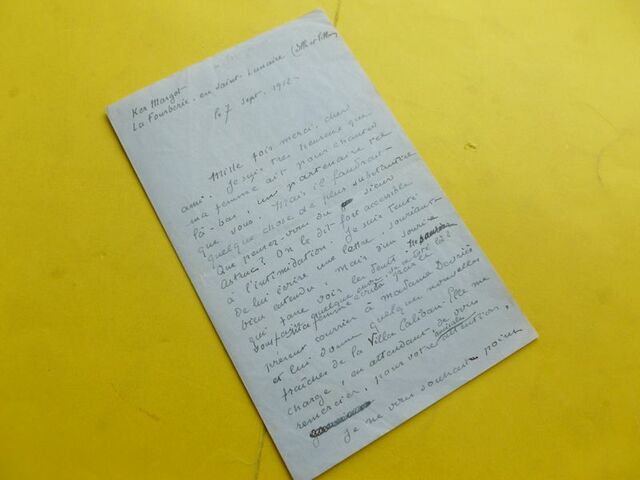 Ker Margot
La Fourberie. en Saint-Lunaire (Ille et Vilaine)
le 7 sept. 1912
Mille fois merci, cher
ami. Je suis très heureux que
ma femme ait pour chanter
là-bas, un partenaire tel
que vous! Mais il faudrait
quelque chose de plus substantiel
Que pensez-vous du sieur
Astruc? On le dit fort accessible
à l'intimidation. Je suis tenté
de lui écrire une lettre, souriante
bien entendu, mais d'un sourire
qui fasse voir les dents.
ma femme écrit par le
présent courrier à Madame
et lui donne quelques nouvelles
fraîches de la Villa Caliban. Elle me
charge, en attendant de vous
remercier, pour votre amicale attention,
Je ne vous souhaite point